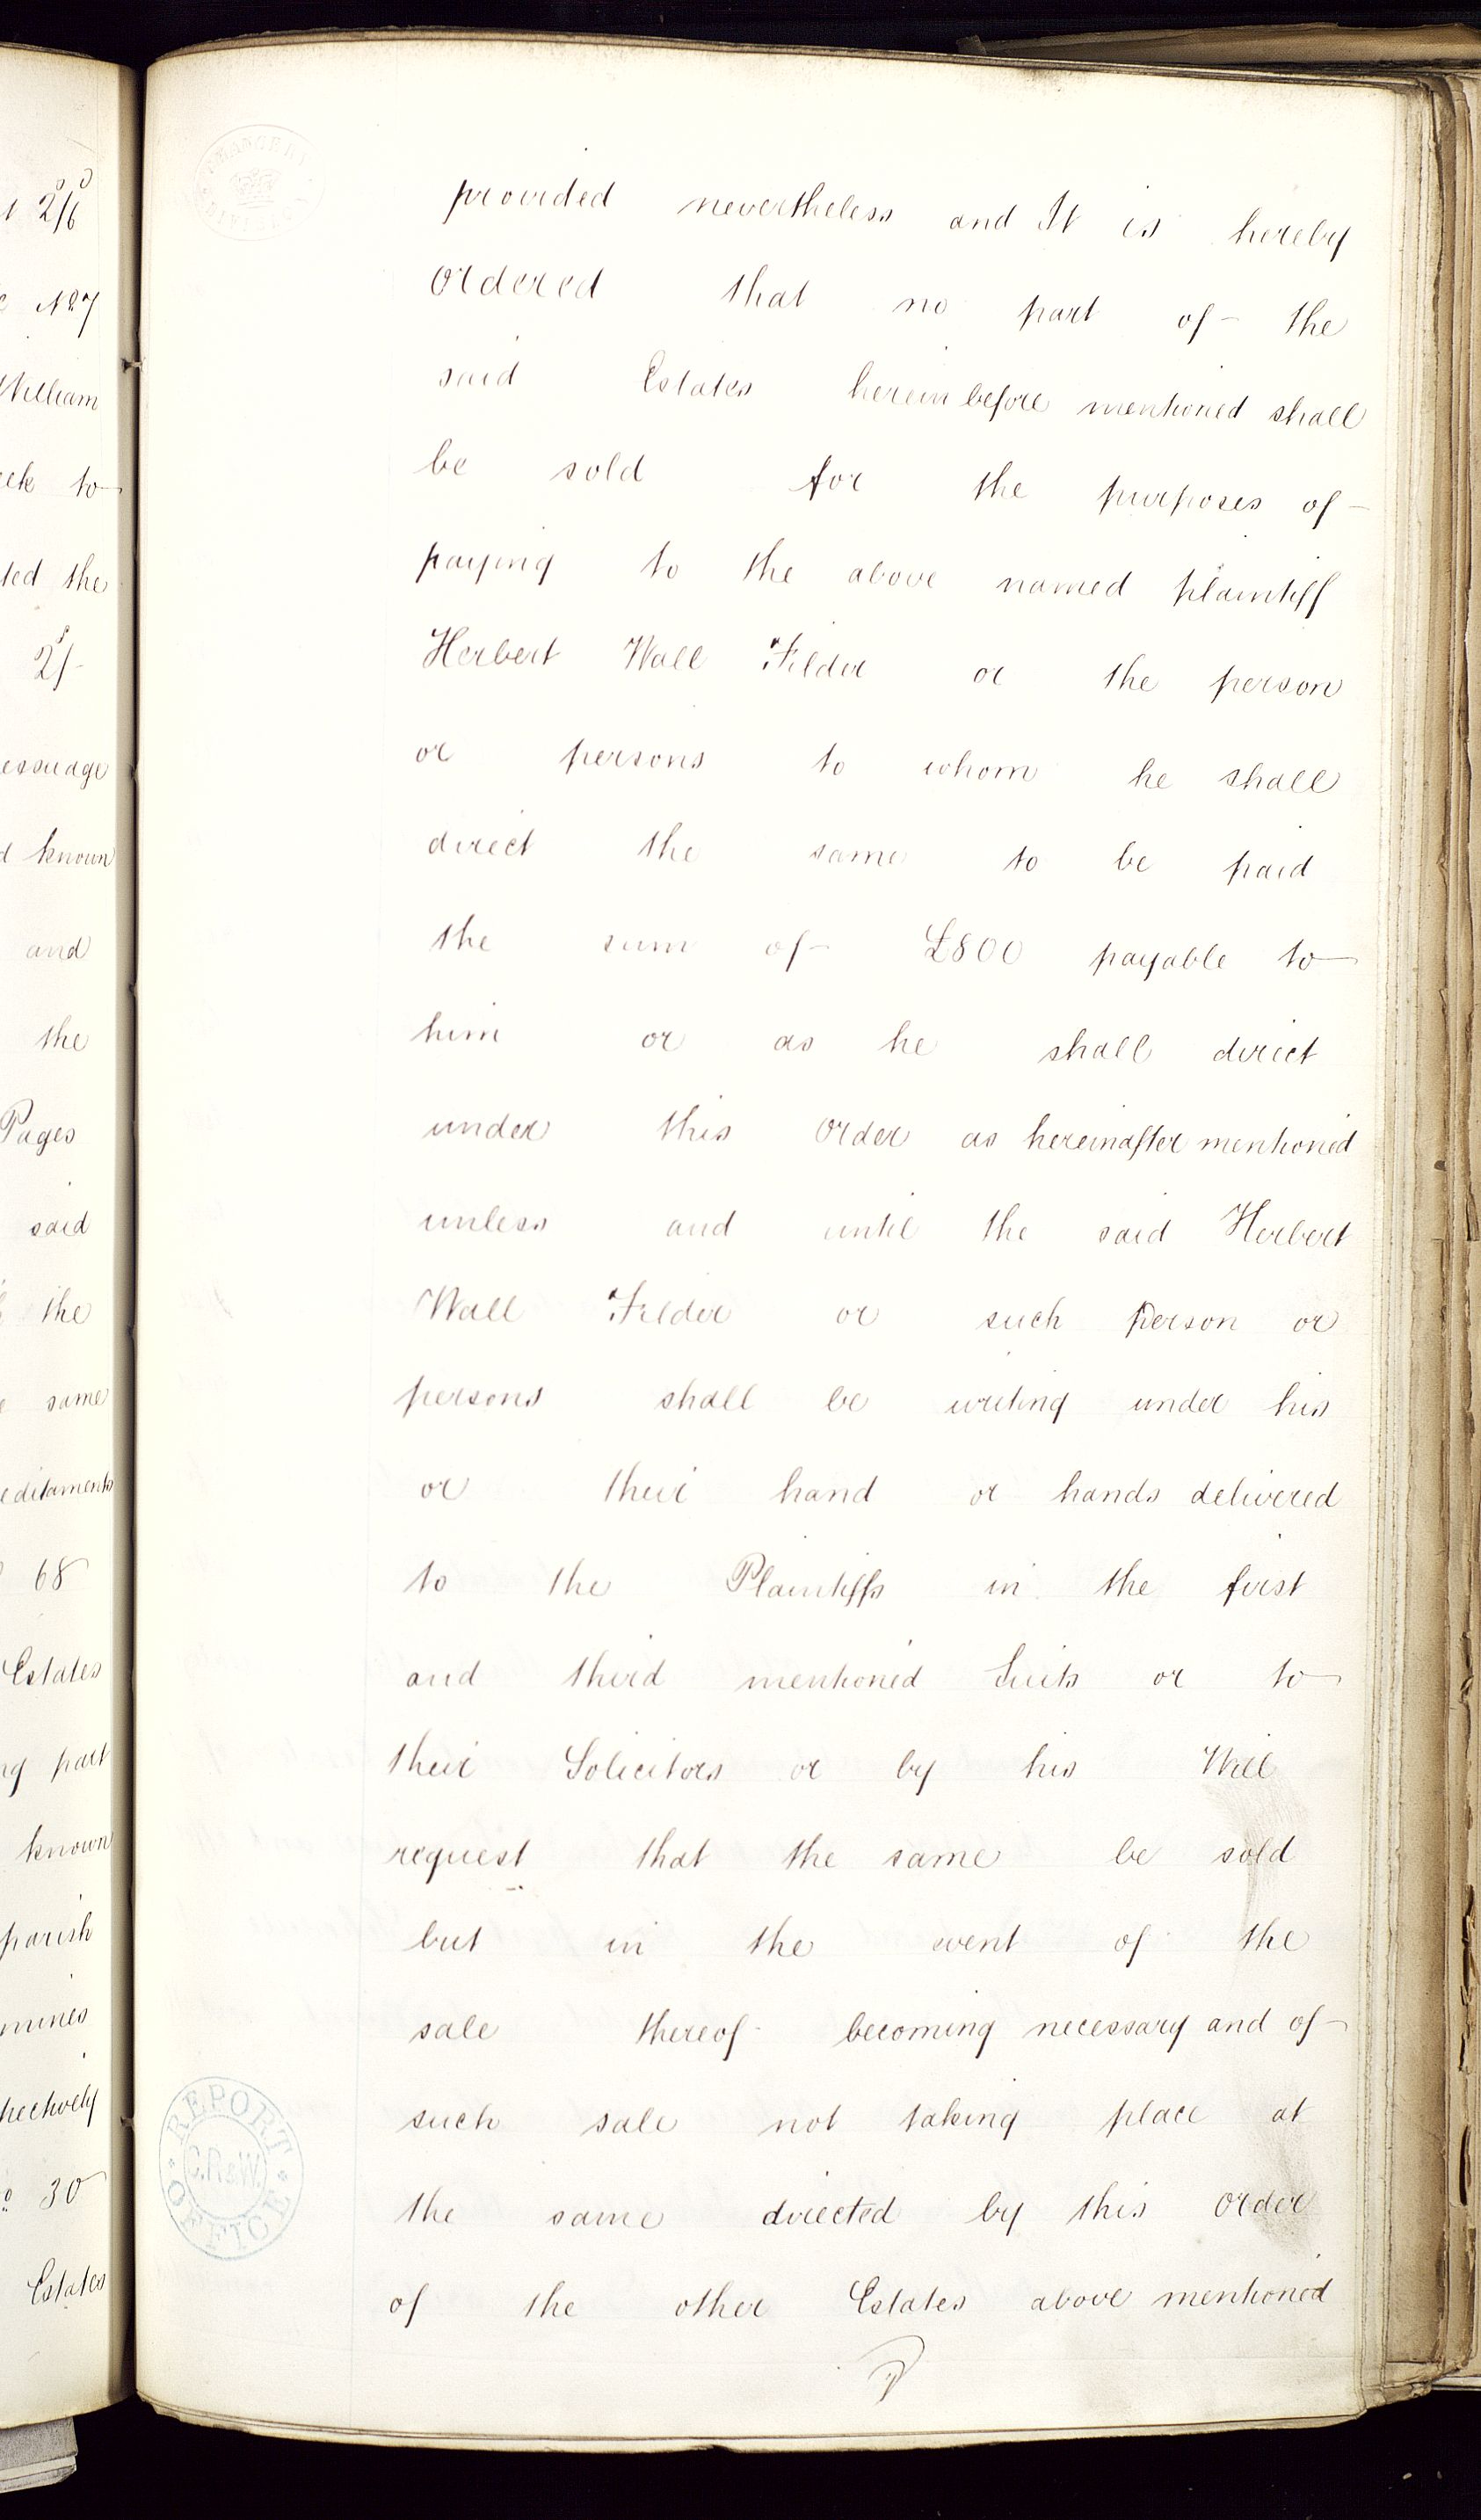 t 2/6
No 7
William
eek to
ted the
2/-
essuage
d known
and
the
Pages
said
the
same
editaments
68
Estates
ng part
known
parish
mines
pectively
o 30
Estates
CHANCERY DIVISION
provided nevertheless and It is hereby
ordered that no part of the
said Estates hereinbefore mentioned shall
be sold for the purposes of
paying to the above named plaintiff
Herbert Wall Filder or the person
or persons to whom he shall
direct the same to be paid
the sum of £800 payable to
him or as he shall direct
under this order as hereinafter mentioned
unless and until the said Herbert
Wall Filder or such person or
persons shall be writing under his
or their hand or hands delivered
to the Plaintiffs in the first
and third mentioned Suits or to
their Solicitors or by his Will
request that the same be sold
but in the event of the
sale thereof becoming necessary and of
such sale not taking place at
the same directed by this order
of the other Estates above mentioned
REPORT OFFICE
C.R&W.